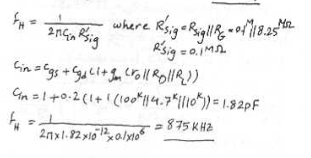 f_H = 1 / 2πC_in R'_sig where R'_sig = R_sig || R_G = 0.1^M || 8.25^MΩ
R'_sig = 0.1^MΩ
C_in = C_gs + C_gd (1 + g_m (r_o || R_D || R_L))
C_in = 1 + 0.2 (1 + 1 (100^K || 4.7^K || 10^K)) = 1.82 pF
f_H = 1 / 2π×1.82×10^-12×0.1×10^6 = 875 KHz